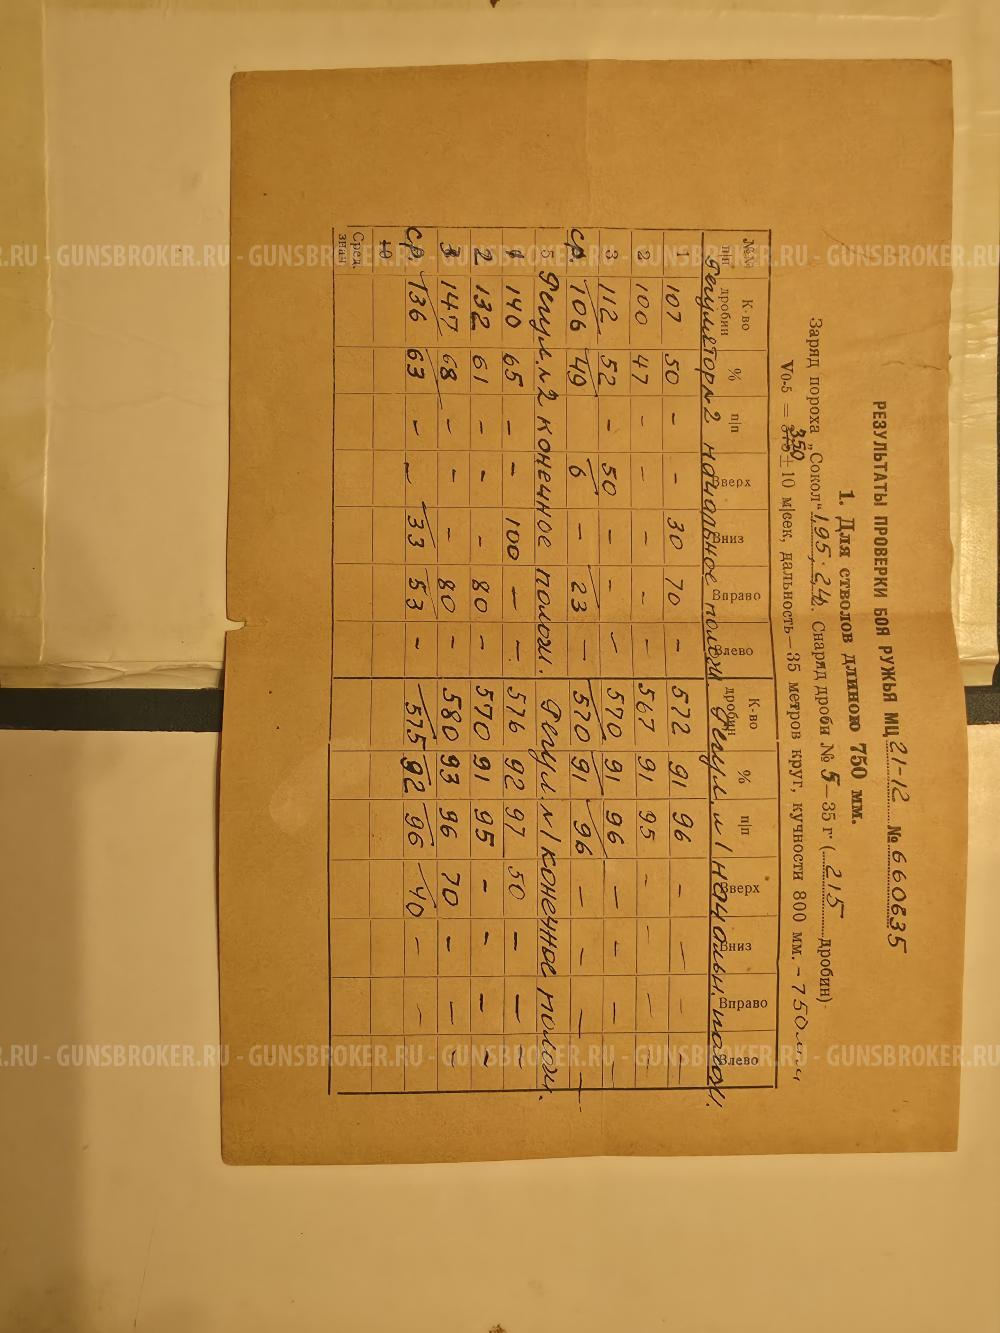 РЕЗУЛЬТАТЫ ПРОВЕРКИ БОЯ РУЖЬЯ МЦ 21-12 № 660635
1. Для стволов длиною 750 мм.
Заряд пороха „Сокол“ 1,95. 2,4. Снаряд дроби № 5—35 г (215 дробин)
V0-5 = 375 350 ± 10 м/сек, дальность—35 метров круг, кучности 800 мм. - 750 мм
№№ п|п К-во дробин % п|п Вверх Вниз Вправо Влево К-во дробин % п|п Вверх Вниз Вправо Влево
Регулятор №2 начальное полож. Регул. №1 начальн. полож.
1 107 50 - - 30 70 - 572 91 96 - - - -
2 100 47 - - - - - 567 91 95 - - - -
3 112 52 - 50 - - - 570 91 96 - - - -
ср. 106 49 6 - 23 - 570 91 96 - - - -
5 Регул. №2 конечное полож. Регул. №1 конечное полож.
1 140 65 - - 100 - - 576 92 97 50 - - -
2 132 61 - - - 80 - 570 91 95 - - - -
3 147 68 - - - 80 - 580 93 96 70 - - -
ср. 136 63 - - 33 53 - 575 92 96 40 - -
10
Сред. знач
.RU - GUNSBROKER.RU - GUNSBROKER.RU - GUNSBROKER.RU - GUNSBROKER.RU - GUNSBR
.RU - GUNSBROKER.RU - GUNSBROKER.RU - GUNSBROKER.RU - GUNSBROKER.RU - GUNSBR